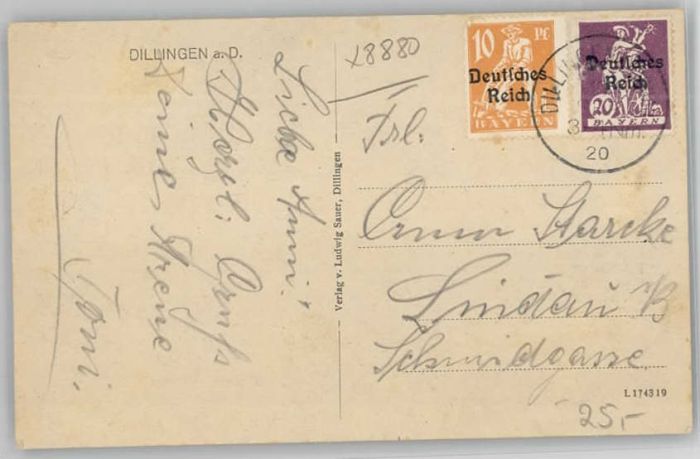 DILLINGEN a. D.
x8880
10 Pf
Deutsches
Reich
BAYERN
Deutsches
Reich
20
BAYERN
DILLING
8
20
Liebe Anni!
Herzl. Gruß
Deine
Toni.
Verlag v. Ludwig Sauer, Dillingen
Frl.
Anni Starcke
Lindau i/B
Schmidgasse
L 17 4319
25,-